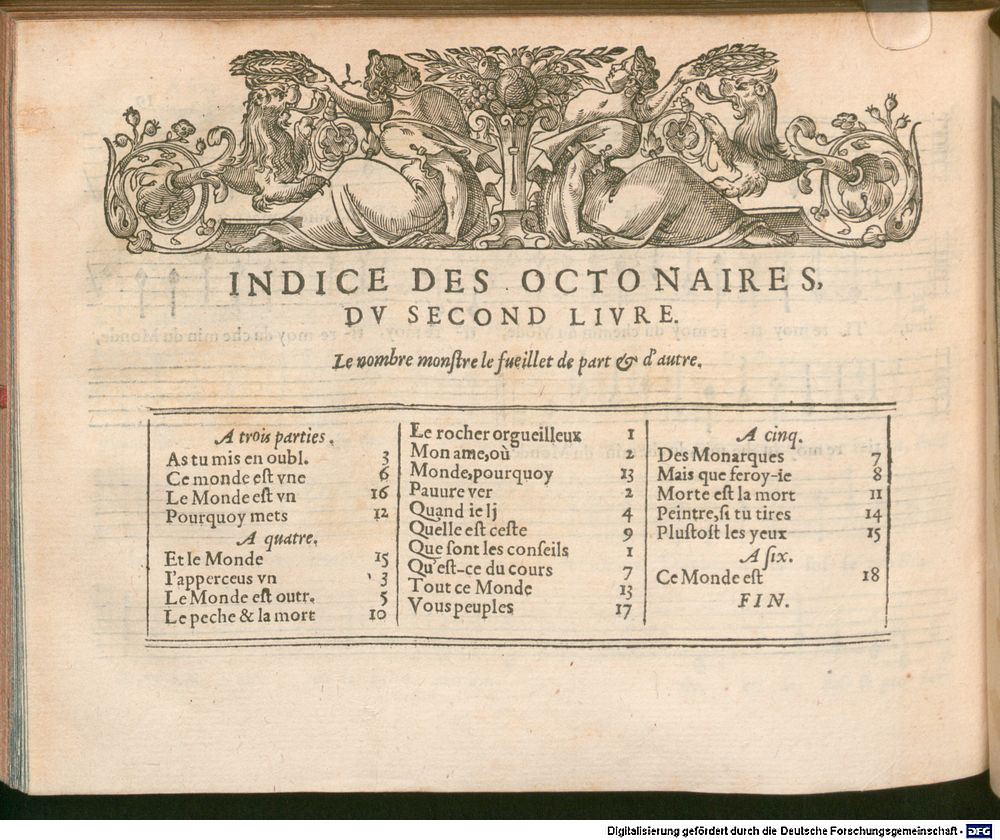 INDICE DES OCTONAIRES,
DV SECOND LIVRE.
Le nombre monſtre le fueillet de part & d'autre.
A trois parties.
As tu mis en oubl. 3
Ce monde eſt vne 6
Le Monde eſt vn 16
Pourquoy mets 12
A quatre.
Et le Monde 15
I'apperceus vn 3
Le Monde eſt outr. 5
Le peche & la mort 10
Le rocher orgueilleux 1
Mon ame, où 2
Monde, pourquoy 13
Pauure ver 2
Quand ie lj 4
Quelle eſt ceſte 9
Que ſont les conſeils 1
Qu'eſt-ce du cours 7
Tout ce Monde 13
Vous peuples 17
A cinq.
Des Monarques 7
Mais que feroy-ie 8
Morte eſt la mort 11
Peintre, ſi tu tires 14
Pluſtoſt les yeux 15
A ſix.
Ce Monde eſt 18
FIN.
Digitalisierung gefördert durch die Deutsche Forschungsgemeinschaft - DFG